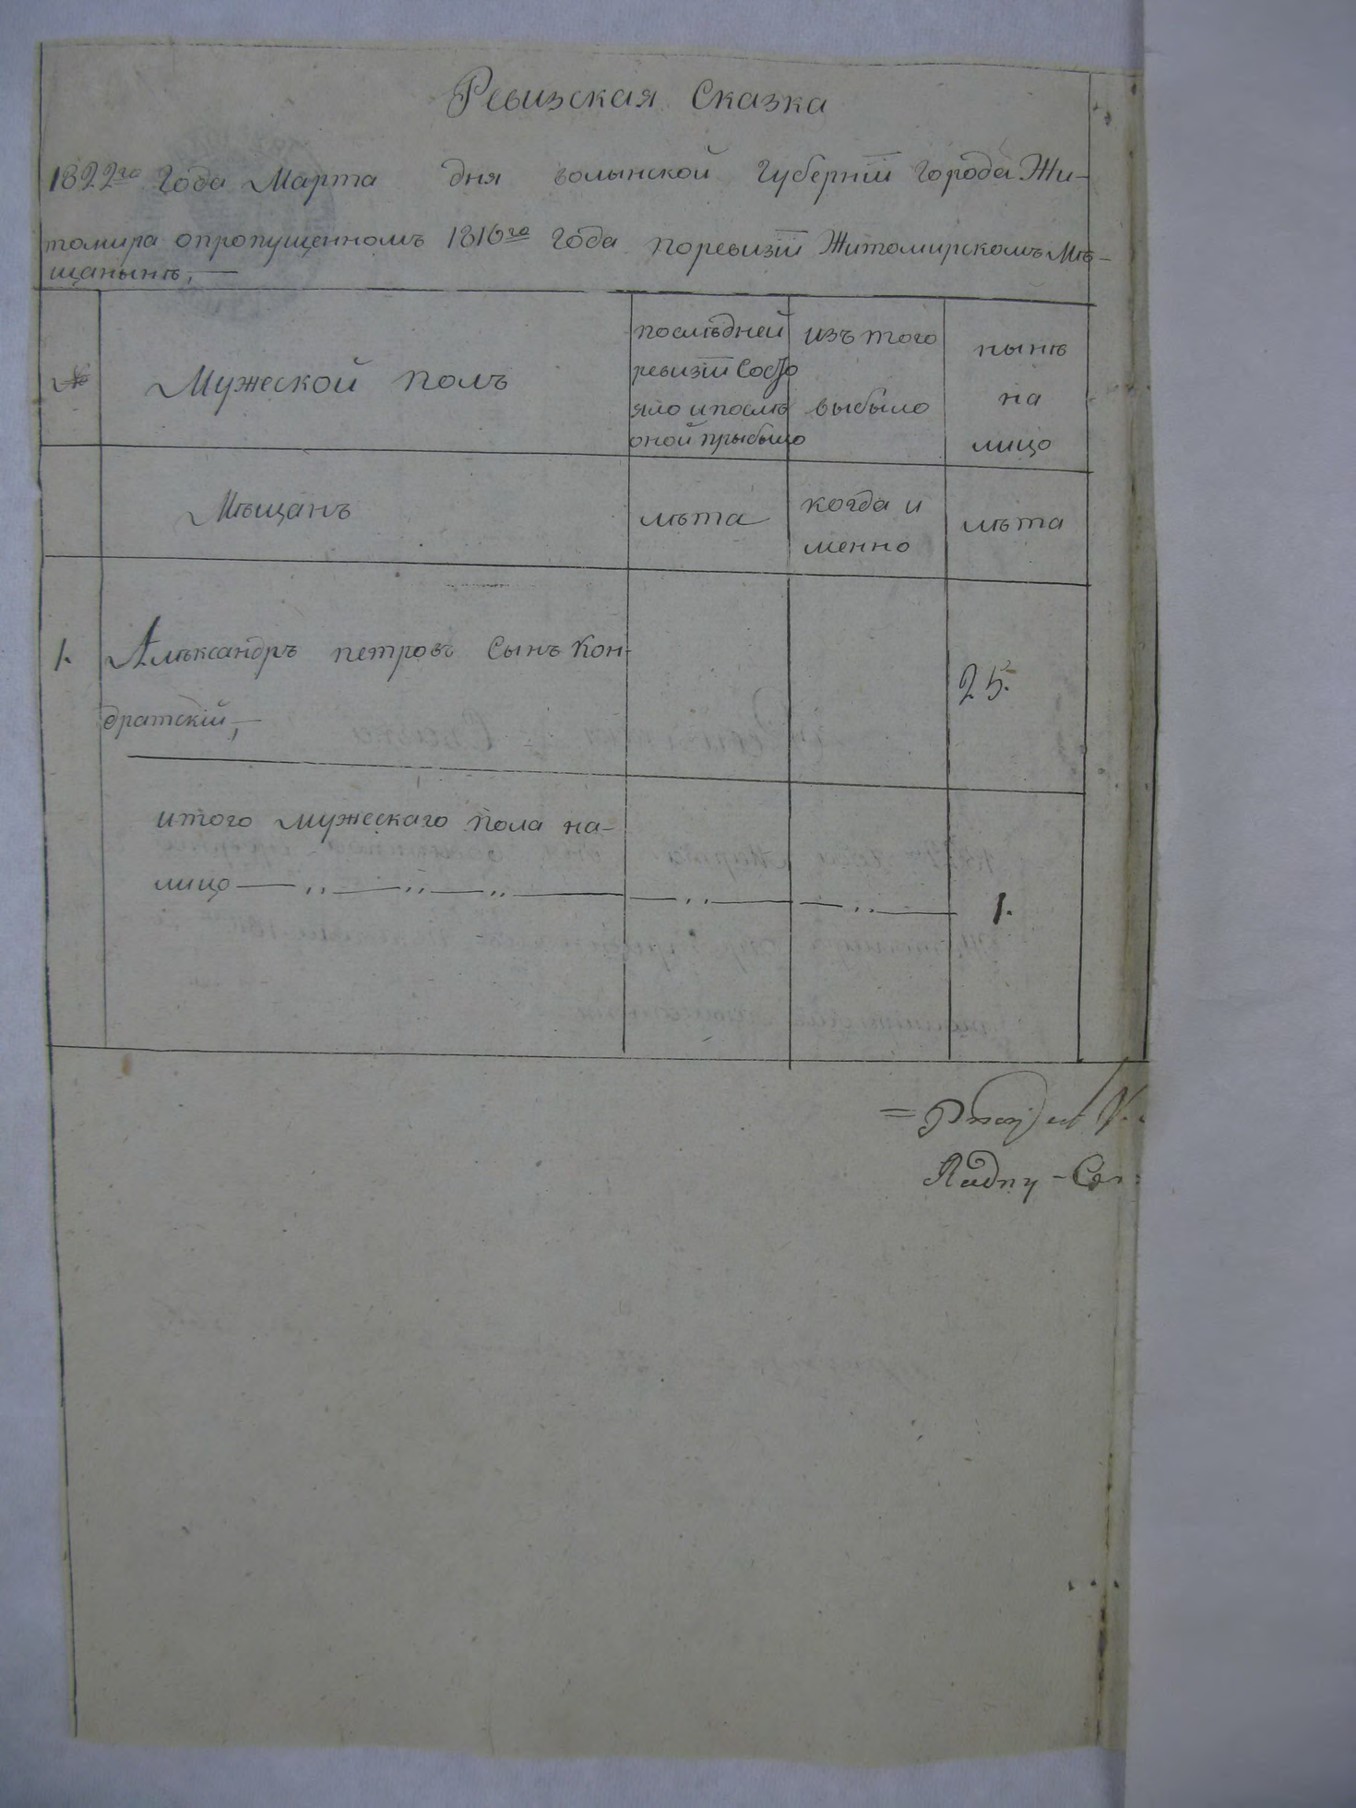 Ревизская Сказка
1822го года Марта дня волынской губернїи города Жи-
томира опропущенномъ 1816го года поревизїи Житомирскомъ мѣ-
щанынѣ,—
№ Мужеской полъ
послѣдней
ревизїи Состо
яло и послѣ
оной прыбыло
изъ того
выбыло
нынѣ
на
лицо
Мѣщанъ
лѣта
когда и
менно
лѣта
1. Алѣксандръ петровъ Сынъ Кон-
дратскїй,—
25.
итого мужескаго пола на-
лицо — „ — „ — „ — „ — „ — 1.